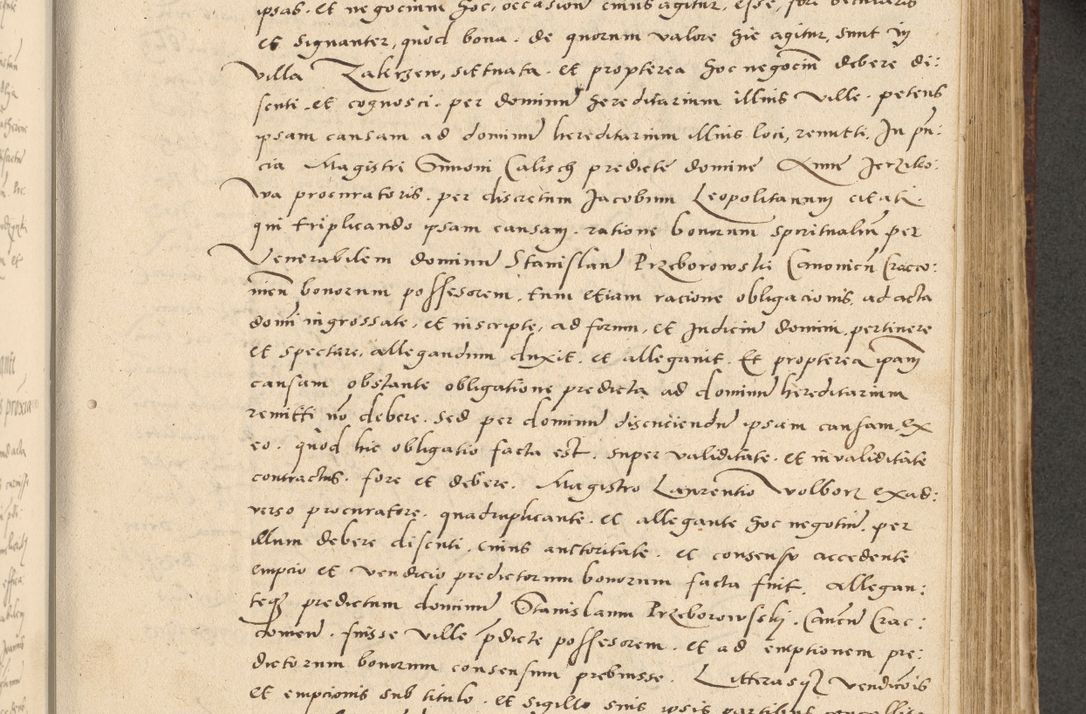 ipsas. et negocium hoc, occasione cuius agitur, esse, fore
et signanter, quod bona. de quorum valore hic agitur, sunt in
villa Zakrzew, sittuata. et propterea hoc negocium debere di:
scuti. et cognosci. per dominum hereditarium illius ville. petens
ipsam causam ad dominum hereditarium illius loci, remitti, In pñ:
cia Magistri Simoni Calisch predicte domine Anne Jerziko:
wa procuratoris. per discretum Jacobum Leopolitanum citati.
qui triplicando ipsam causam. ratione bonorum spiritualium per
Venerabilem dominum Stanislaum Przeborowski Canonicum Craco:
vien bonorum possessorem. tum etiam racione obligacionis, ad acta
domini ingrossate. et inscripte, ad forum, et Judicium domini, pertinere
et spectare, allegandum duxit. et allegavit. Et propterea ipsam
causam obstante obligatione predicta ad dominum hereditarium
remitti nõ debere. Sed per dominum discuciendum ipsam causam, ex
eo. quod hic obligatio facta est. super validitate. et invaliditate
contractus. fore et debere. Magistro Laurentio Wolborz exad:
verso procuratore. quadruplicante. et allegante hoc negotium, per
illum debere discuti. cuius auctoritate. et consensu accedente
empcio et vendicio predictorum bonorum facta fuit. Allegan:
teqz predictum dominum Stanislaum Przeborowsky. Canõcum Crac:
fuisse ville pdicte possessorem. et ad emptionem pre:
dictorum bonorum consensum prebuisse. Litterasqz vendicõis
et empcionis sub titulo. et sigillo suis ipsis partibus